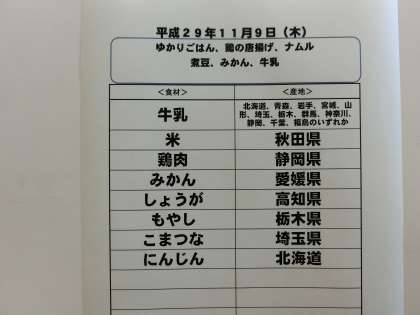 平成29年11月9日（木）
ゆかりごはん、鶏の唐揚げ、ナムル
煮豆、みかん、牛乳
＜食材＞ ＜産地＞
牛乳 北海道、青森、岩手、宮城、山
形、埼玉、栃木、群馬、神奈川、
静岡、千葉、福島のいずれか
米 秋田県
鶏肉 静岡県
みかん 愛媛県
しょうが 高知県
もやし 栃木県
こまつな 埼玉県
にんじん 北海道